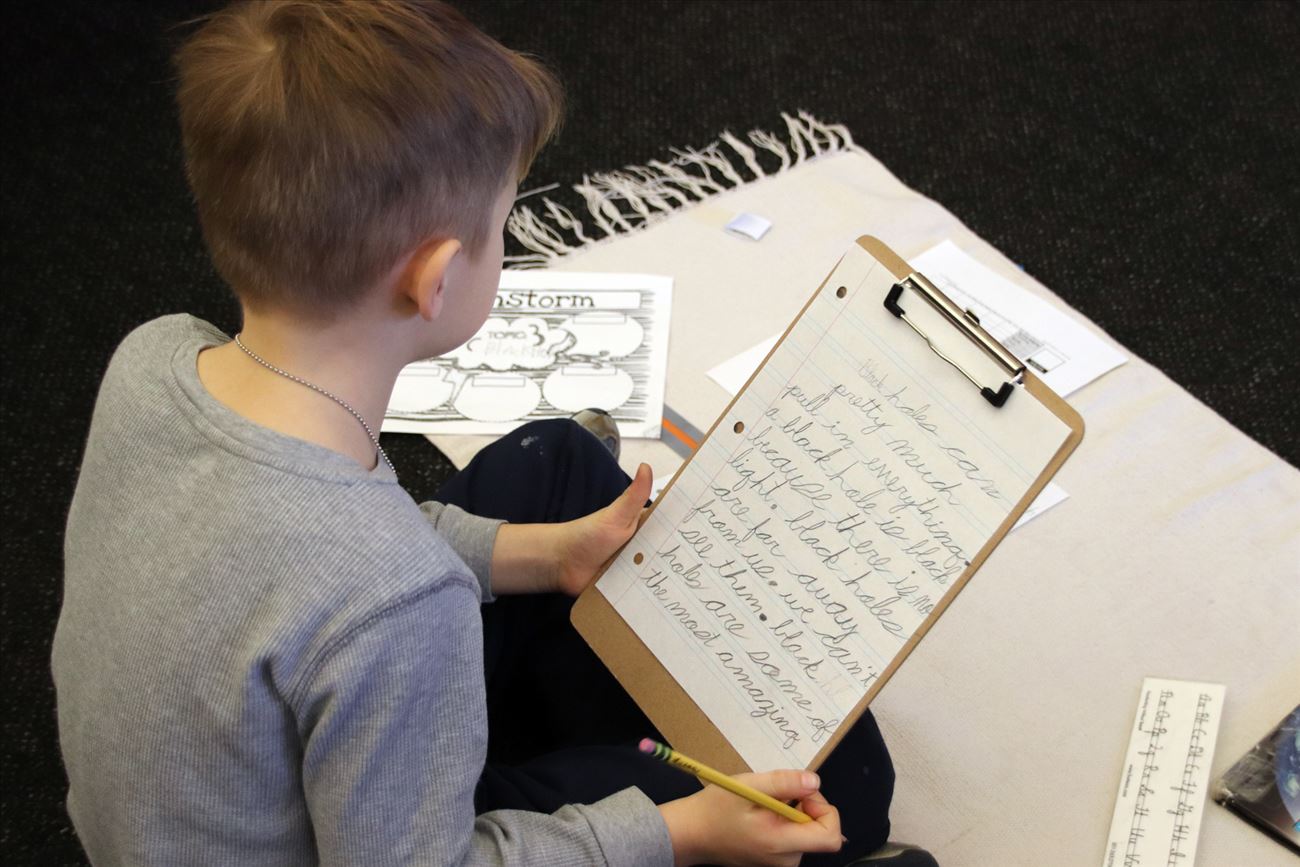 nstorm
TOPIC
Black holes can
pretty much
pull in everything.
a black hole is black
because there is no
light. black holes
are far away
from us. we can't
see them. black
holes are some of
the most amazing